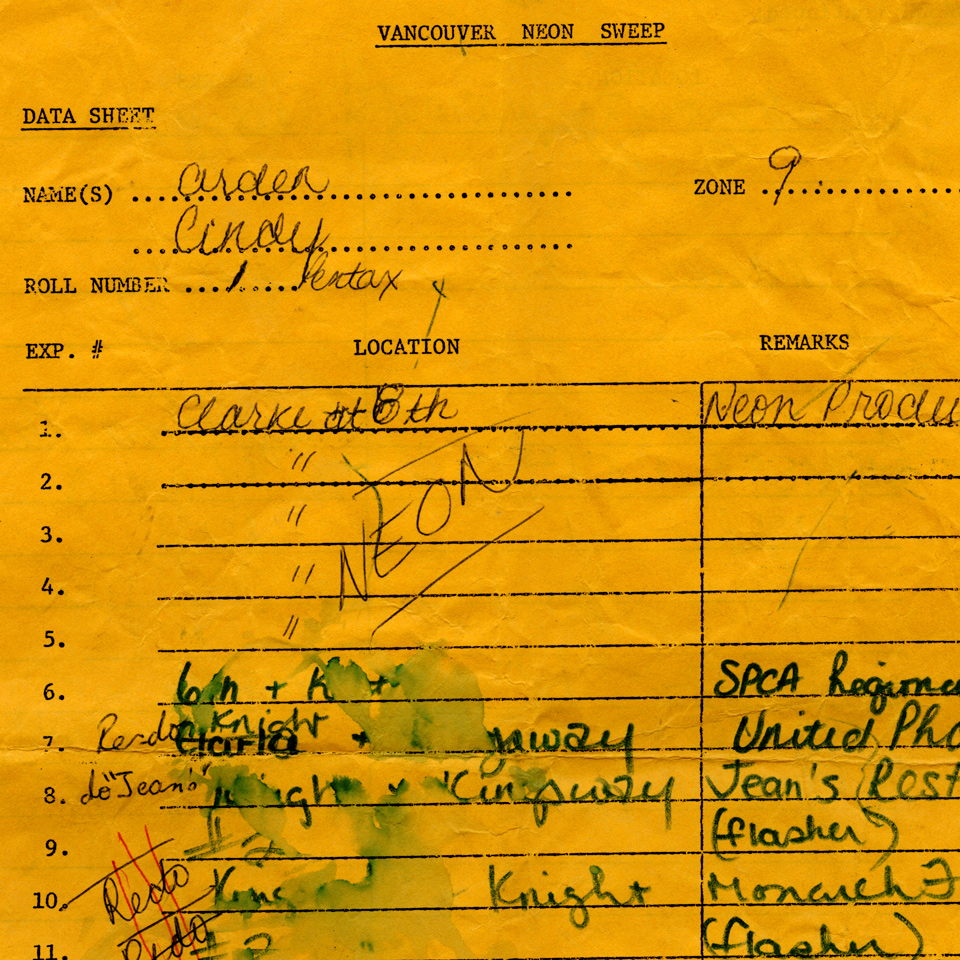 VANCOUVER NEON SWEEP
DATA SHEET
NAME(S) Arden ZONE 9
Cindy
ROLL NUMBER 1 Pentax
EXP. # LOCATION REMARKS
1. Clarke at 8th Neon Produ
2. "
3. "
4. "
NEON
5. "
6. 6th + SPCA
Knight
7. Re-do + United Pho
8. "Jean's" Knight + Kingsway Jean's Rest
9. #2 (flasher)
10. Redo King Knight Monarch F
11. Redo #2 (flasher)